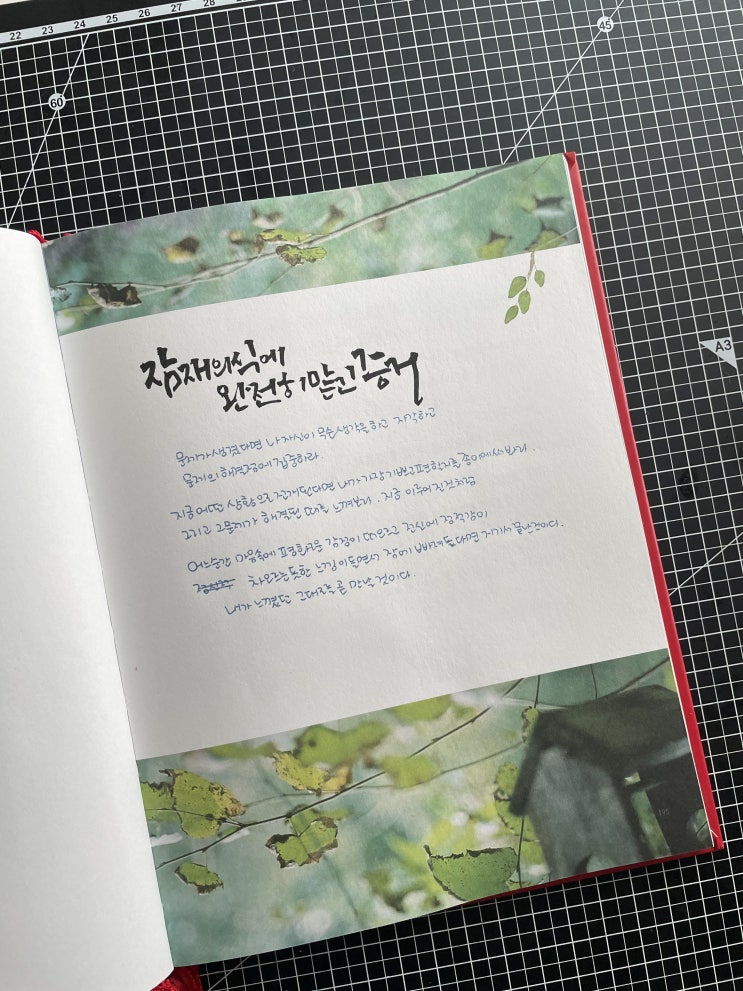 22 23 24 25 26 27 28
60
45
A3
잠재의식에
완전히 맡긴 증거
문제가 생겼다면 나 자신이 무슨생각을하고 지각하고
문제의 해결점에 집중하라.
지금 어떤 상황으로 전개된다면 내가 가장 기쁘고 평화할지를 종이에 써봐라.
그리고 그 문제가 해결된 때를 느껴봐라. 지금 이루어진것처럼
어느순간 마음속에 평화로운 감정이 떠오르고 전신에 정적감이
차오르는듯한 느낌이 들면서 잠에 빠져든다면 거기서 끝난것이다.
내가 느꼈던 그대로를 곧 만날 것이다.
195